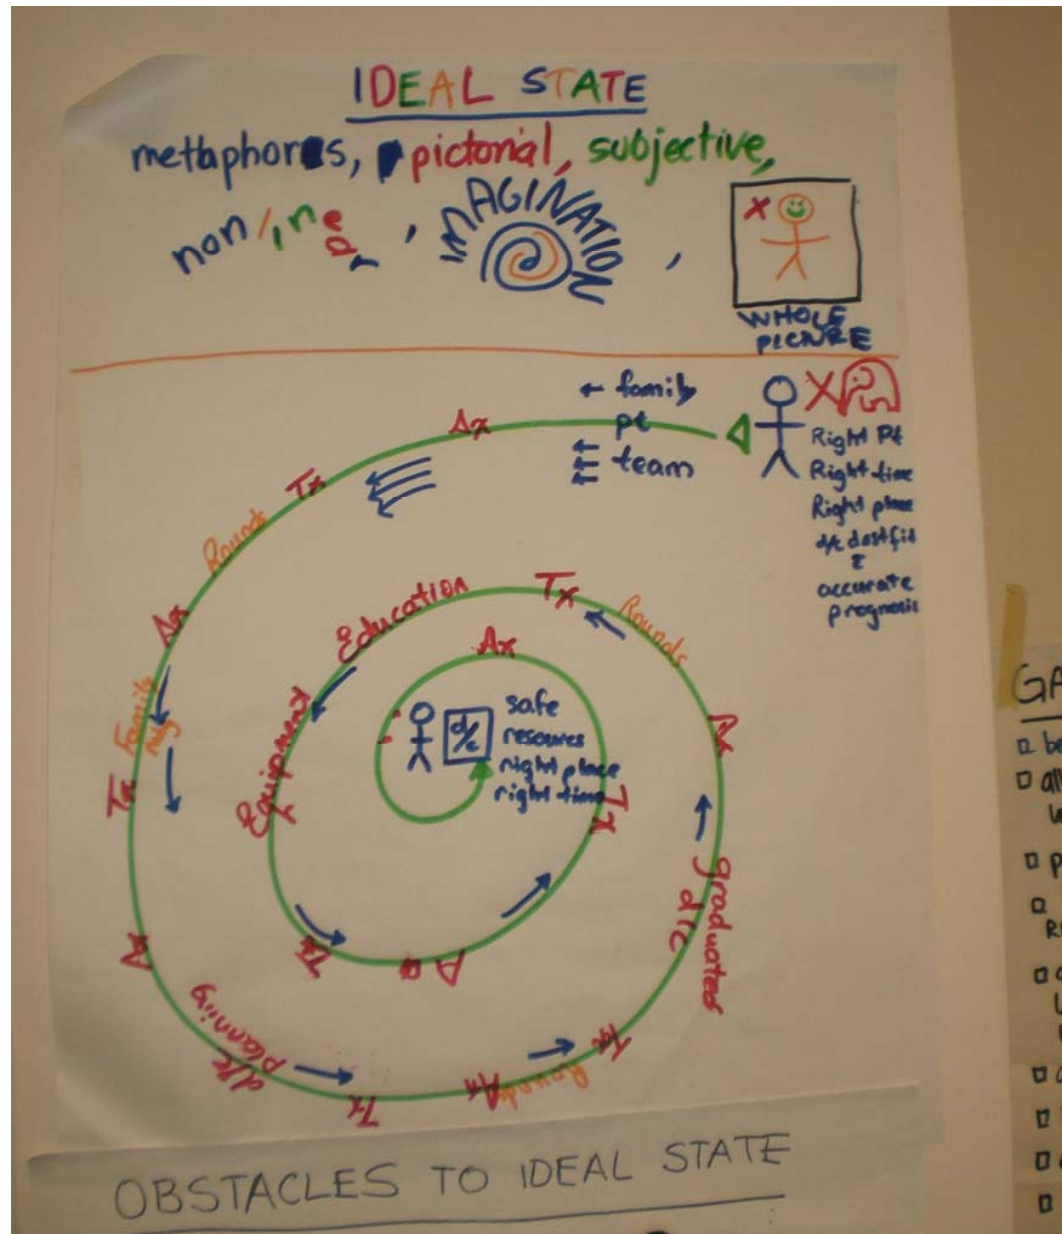 IDEAL STATE
metaphores, pictorial, subjective,
non linear, IMAGINATION,
WHOLE
PICNRE
← family
pt
team
Right Pt
Right time
Right place
d/c
&
accurate
prognosis
Ax
Tx
Rounds
Ax
Family
mtg
Tx
Ax
d/c
planning
Tx
Ax
Rounds
Tx
graduated
d/c
Ax
Rounds
Tx
Education
Equipment
Tx
A
Tx
Ax
d/c
safe
resources
right place
right time
OBSTACLES TO IDEAL STATE
GA
be
all